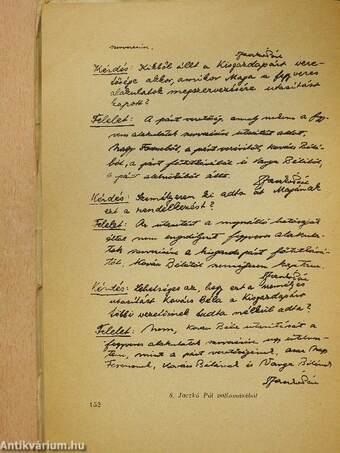 szervezésére.
Jaczkó Pál
Kérdés: Kikből állt a Kisgazdapárt veze-
tősége akkor, amikor Maga a fegyveres
alakulatok megszervezésére utasítást
kapott?
Felelet: A párt vezetőség, amely nekem a fegy-
veres alakulatok szervezésére utasítást adott,
Nagy Ferencből, a párt elnökéből, Kovács Bélá-
ból, a párt főtitkárából és Varga Bélából,
a párt alelnökéből állt.
Jaczkó Pál
Kérdés: Személyesen ki adta át Magának
ezt a rendelkezést?
Felelet: Az utasítást a hatóságai
által nem engedélyezett fegyveres alakula-
tok szervezésére a kisgazdapárt főtitkárá-
tól, Kovács Bélától személyesen kaptam.
Jaczkó Pál
Kérdés: Lehetséges az, hogy ezt a személyes
utasítást Kovács Béla a Kisgazdapárt
többi vezetőinek tudta nélkül adta?
Felelet: Nem, Kovács Béla utasítását a
fegyveres alakulatok szervezésére úgy értelmez-
tem, mint a párt vezetőségének, azaz Nagy
Ferencnek, Kovács Bélának és Varga Bélának
Jaczkó Pál
152
8. Jaczkó Pál vallomásából
antikvarium.hu